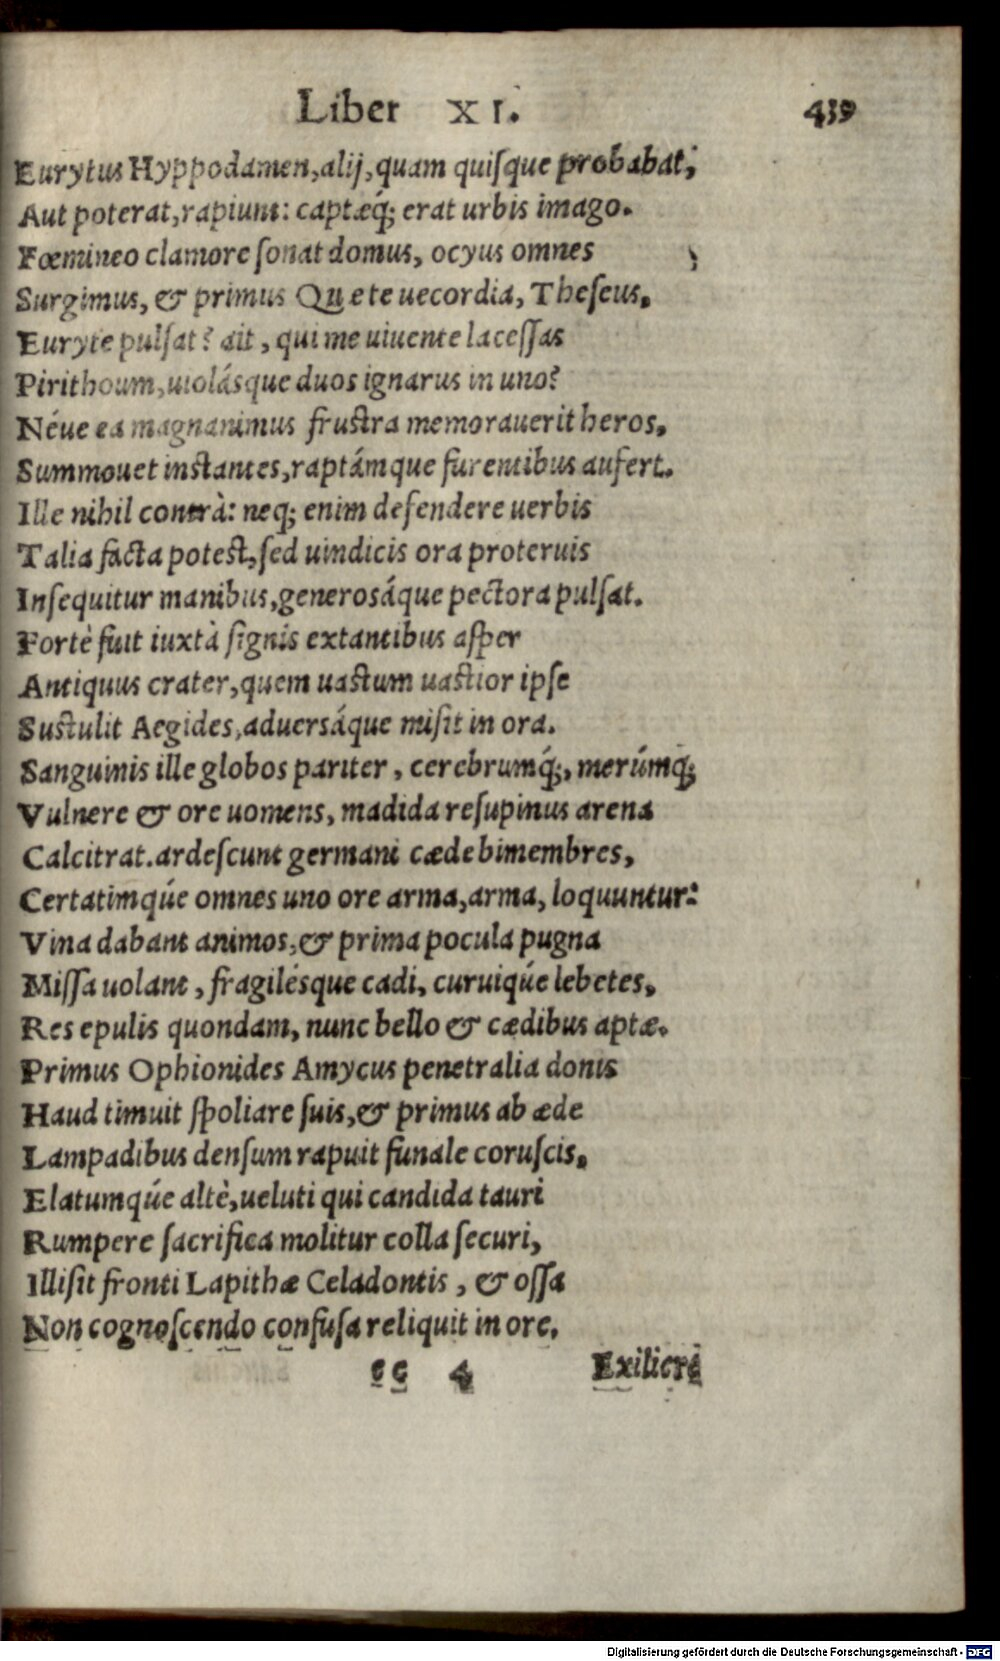 Liber XI. 439
Eurytus Hyppodamen, alij, quam quiſque probabat,
Aut poterat, rapiunt: captæq́; erat urbis imago.
Fœmineo clamore ſonat domus, ocyus omnes
Surgimus, & primus Quę te uecordia, Theſeus,
Euryte pulſat? ait, qui me uiuente laceſſas
Pirithoum, uiolásque duos ignarus in uno?
Néue ea magnanimus fruſtra memorauerit heros,
Summouet inſtantes, raptámque furentibus aufert.
Ille nihil contrà: neq; enim defendere uerbis
Talia facta poteſt, ſed uindicis ora proteruis
Inſequitur manibus, generosáque pectora pulſat.
Fortè fuit iuxtà ſignis extantibus aſper
Antiquus crater, quem uaſtum uaſtior ipſe
Suſtulit Aegides, aduersáque miſit in ora.
Sanguinis ille globos pariter, cerebrumq́;, merúmq́;
Vulnere & ore uomens, madida reſupinus arena
Calcitrat. ardeſcunt germani cæde bimembres,
Certatimqúe omnes uno ore arma, arma, loquuntur:
Vina dabant animos, & prima pocula pugna
Miſſa uolant, fragilésque cadi, curuiqúe lebetes,
Res epulis quondam, nunc bello & cædibus aptæ.
Primus Ophionides Amycus penetralia donis
Haud timuit ſpoliare ſuis, & primus ab æde
Lampadibus denſum rapuit funale coruſcis,
Elatumqúe altè, ueluti qui candida tauri
Rumpere ſacrifica molitur colla ſecuri,
Illiſit fronti Lapithæ Celadontis, & oſſa
Non cognoſcendo confuſa reliquit in ore.
cc 4 Exiliere
Digitalisierung gefördert durch die Deutsche Forschungsgemeinschaft - DFG